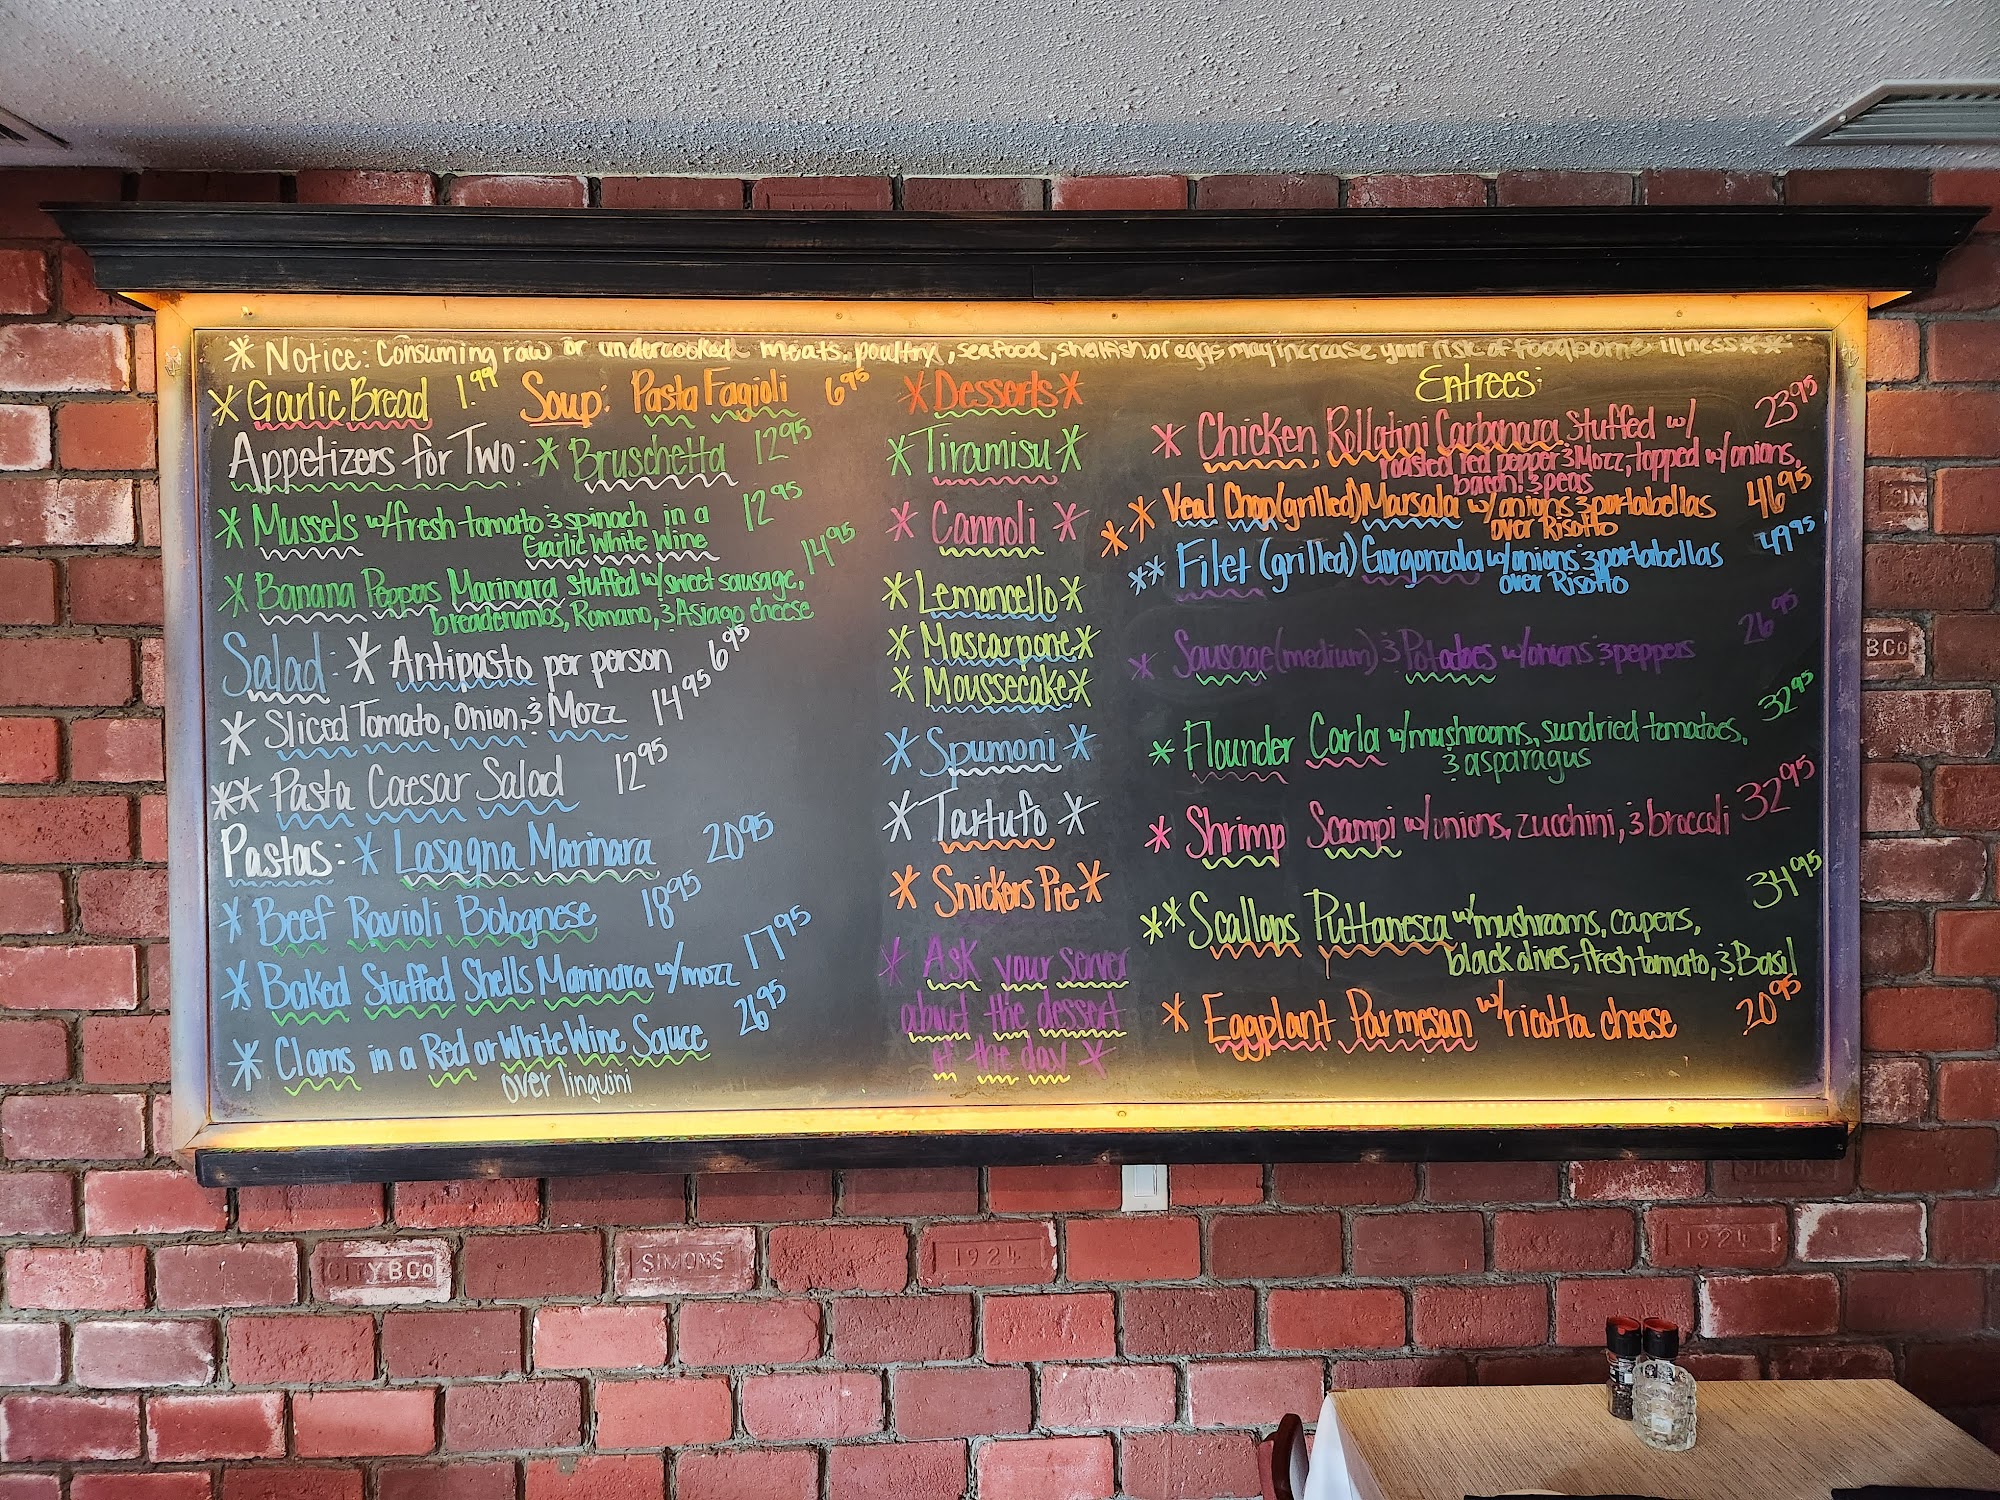 * Notice: Consuming raw or undercooked meats, poultry, seafood, shellfish, or eggs may increase your risk of foodborne illness **
* Garlic Bread 1.99 Soup: Pasta Fagioli 6.95
Appetizers for Two: * Bruschetta 12.95
* Mussels w/fresh tomato & spinach in a 12.95
Garlic White Wine
* Banana Peppers Marinara stuffed w/sweet sausage, 14.95
breadcrumbs, Romano, & Asiago cheese
Salad: * Antipasto per person 6.95
* Sliced Tomato, Onion, & Mozz 14.95
** Pasta Caesar Salad 12.95
Pastas: * Lasagna Marinara 20.95
* Beef Ravioli Bolognese 18.95
* Baked Stuffed Shells Marinara w/mozz 17.95
* Clams in a Red or White Wine Sauce 26.95
over linguini
* Desserts *
* Tiramisu *
* Cannoli *
* Lemoncello *
* Mascarpone *
* Moussecake *
* Spumoni *
* Tartufo *
* Snickers Pie *
* Ask your server
about the dessert
of the day *
Entrees:
* Chicken Rollatini Carbonara stuffed w/ 23.95
roasted red pepper & Mozz, topped w/onions,
bacon, & peas
** Veal Chop (grilled) Marsala w/onions & portabellas 46.95
over Risotto
** Filet (grilled) Gorgonzola w/onions & portabellas 49.95
over Risotto
* Sausage (medium) & Potatoes w/onions & peppers 26.95
* Flounder Carla w/mushrooms, sundried tomatoes, 32.95
& asparagus
* Shrimp Scampi w/onions, zucchini, & broccoli 32.95
** Scallops Puttanesca w/mushrooms, capers, 34.95
black olives, fresh tomato, & Basil
* Eggplant Parmesan w/ricotta cheese 20.95
SIM
BCo
CITYBCo
SIMONS
1924
1924